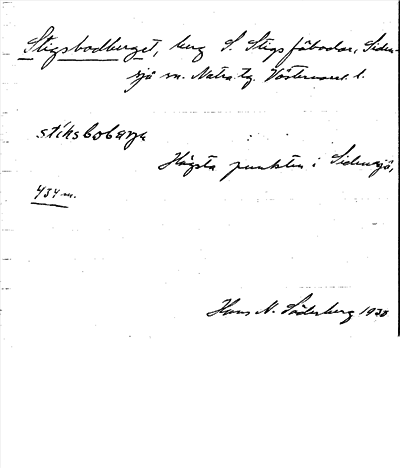 Stigsbodberget, berg S. Stigsfäbodar, Siden-
sjö sn. Nätra tg. Västernorrl. l.
stiksbobærje
Högsta punkten i Sidensjö,
434 m.
Hans N. Söderberg 1930